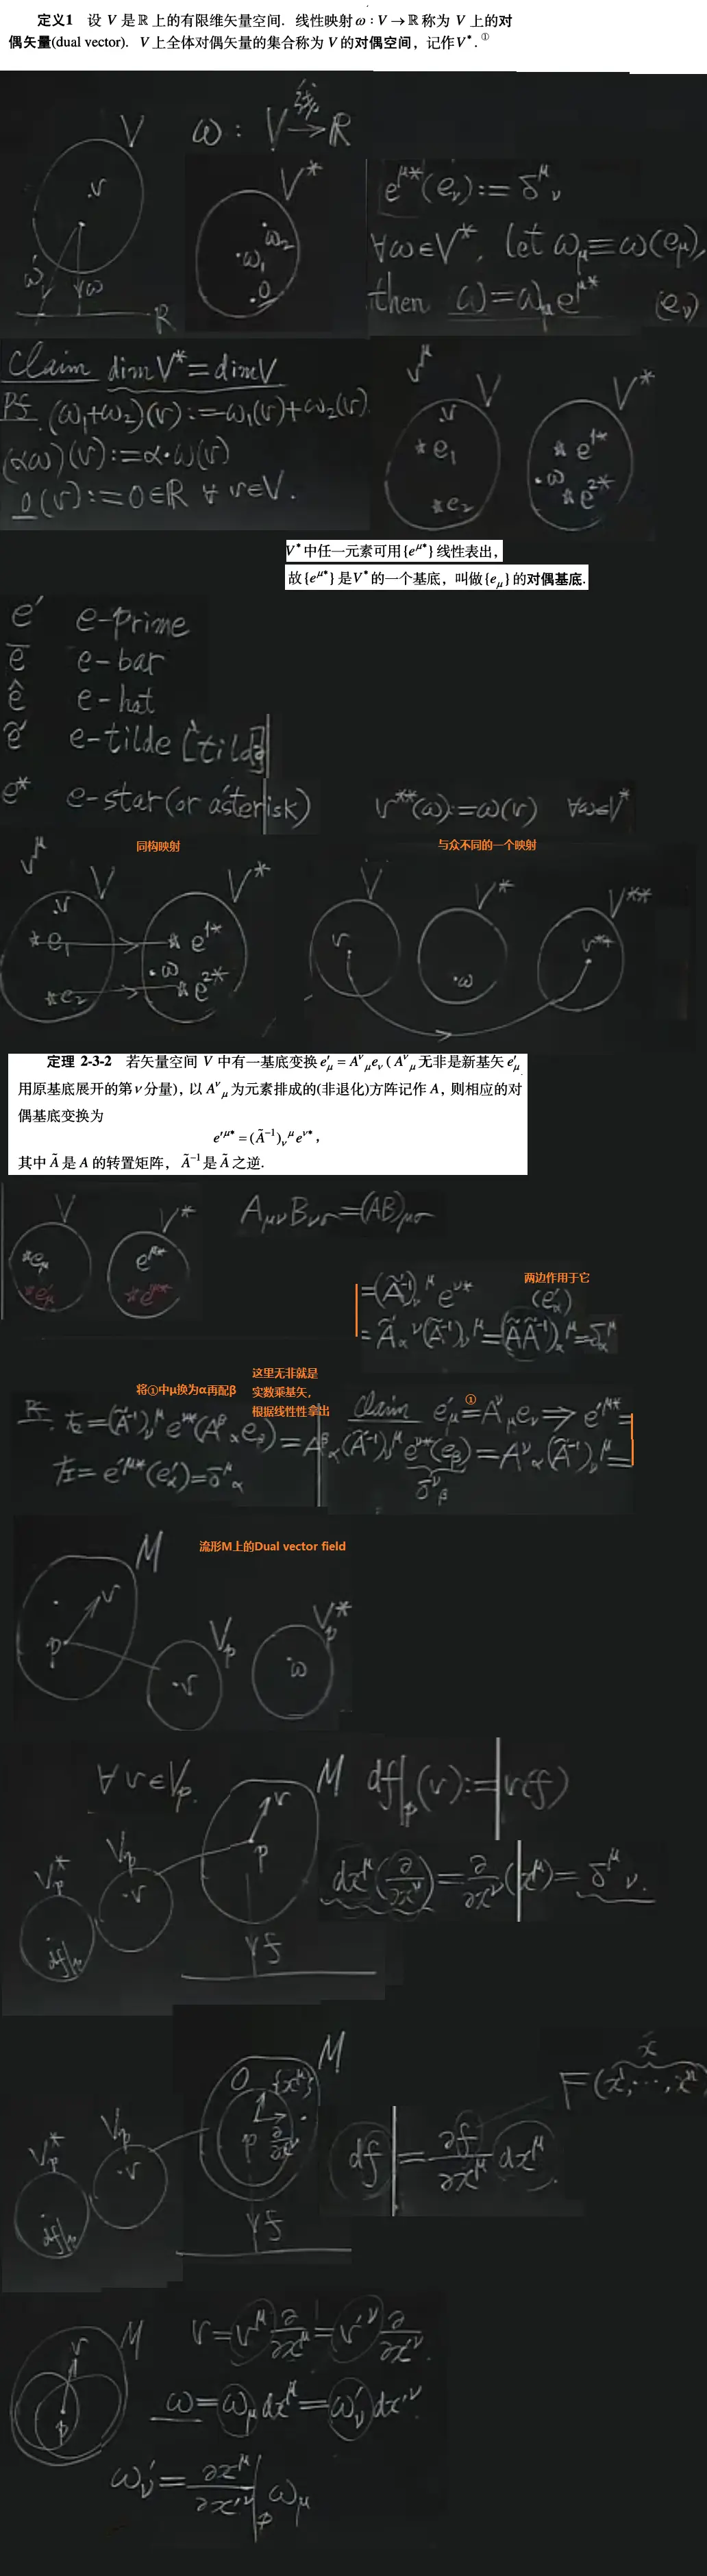 定义1 设 V 是 ℝ 上的有限维矢量空间. 线性映射 ω : V → ℝ 称为 V 上的对
偶矢量(dual vector). V 上全体对偶矢量的集合称为 V 的对偶空间, 记作V*.①
V ω : V 线→ ℝ
v
V*
ω₂
ω₁
0
ω
R
e^μ*(e_ν) := δ^μ_ν
∀ω∈V*, let ω_μ ≡ ω(e_μ),
then ω = ω_μ e^μ* (e_ν)
Claim dim V* = dim V
Pf. (ω₁+ω₂)(v) := ω₁(v)+ω₂(v)
(αω)(v) := α·ω(v)
0(v) := 0∈ℝ ∀ v∈V.
v^μ
V V*
v
e₁ e^1*
ω
e₂ e^2*
V*中任一元素可用{e^μ*}线性表出,
故{e^μ*}是V*的一个基底, 叫做{e_μ}的对偶基底.
e′ e-prime
ē e-bar
ê e-hat
ẽ e-tilde [tild]
e* e-star (or asterisk)
v**(ω) := ω(v) ∀ω∈V*
同构映射
与众不同的一个映射
v^μ
V V*
v
e₁ e^1*
ω
e₂ e^2*
V V* V**
v ω v**
定理 2-3-2 若矢量空间 V 中有一基底变换 e′_μ = A^ν_μ e_ν ( A^ν_μ 无非是新基矢 e′_μ
用原基底展开的第ν分量), 以 A^ν_μ 为元素排成的(非退化)方阵记作 A, 则相应的对
偶基底变换为
e′^μ* = (Ã⁻¹)_ν^μ e^ν*,
其中 Ã 是 A 的转置矩阵, Ã⁻¹是 Ã 之逆.
V V*
e_μ e^μ*
e′_μ e′^μ*
A_μν B_νσ = (AB)_μσ
两边作用于它
= (Ã⁻¹)_ν^μ e^ν* (e′_α)
= Ã_α^ν (Ã⁻¹)_ν^μ = (ÃÃ⁻¹)_α^μ = δ_α^μ
将①中μ换为α再配β
这里无非就是
实数乘基矢,
根据线性性拿出
①
Claim e′_μ = A^ν_μ e_ν ⇒ e′^μ* =
Pf. 右 = (Ã⁻¹)_ν^μ e^ν*(A^β_α e_β) = A^β_α (Ã⁻¹)_ν^μ e^ν*(e_β) = A^ν_α (Ã⁻¹)_ν^μ =
δ^ν_β
左 = e′^μ*(e′_α) = δ^μ_α
流形M上的Dual vector field
M
v
p
V_p V_p*
v ω
∀ v∈V_p. M df|_p(v) := v(f)
v
p
V_p* V_p
v
df|p
f
dx^μ(∂/∂x^ν) = ∂/∂x^ν(x^μ) = δ^μ_ν.
M F(x¹,⋯,xⁿ)
O {x^μ}
p ∂/∂x^μ
V_p* V_p
v
df|p
f
df = ∂f/∂x^μ dx^μ.
M
v
p
v = v^μ ∂/∂x^μ = v′^ν ∂/∂x′^ν.
ω = ω_μ dx^μ = ω′_ν dx′^ν.
ω′_ν = ∂x^μ/∂x′^ν |_p ω_μ